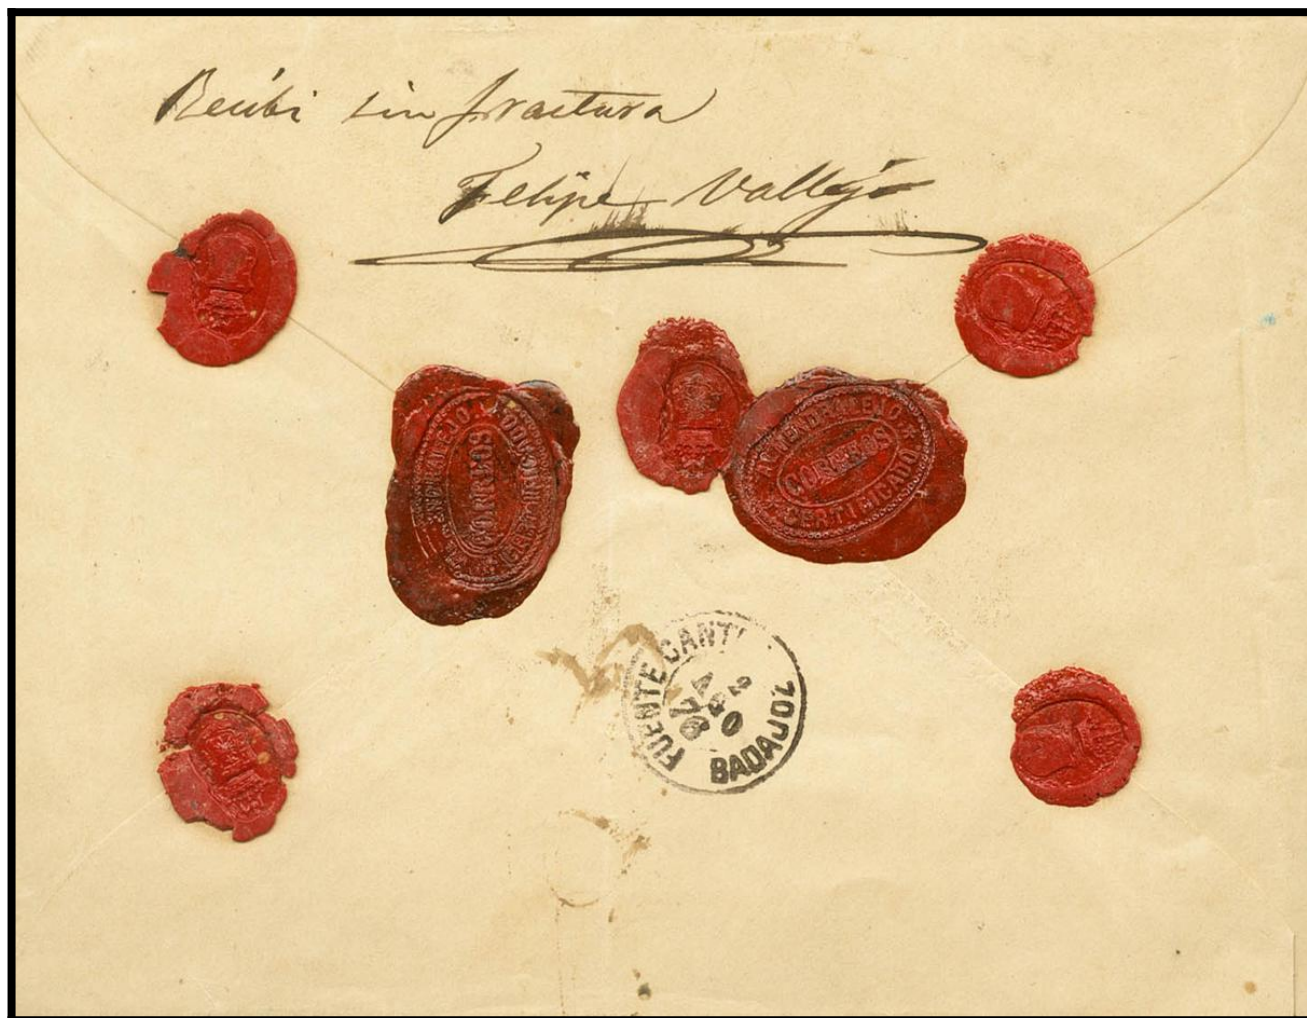 Recibi sin fractura
Felipe Vallejo
ALMENDRALEJO.
CORREOS
CERTIFICADO.
ALMENDRALEJO
CORREOS
CERTIFICADO.
FUENTE CANT
76
BADAJOZ